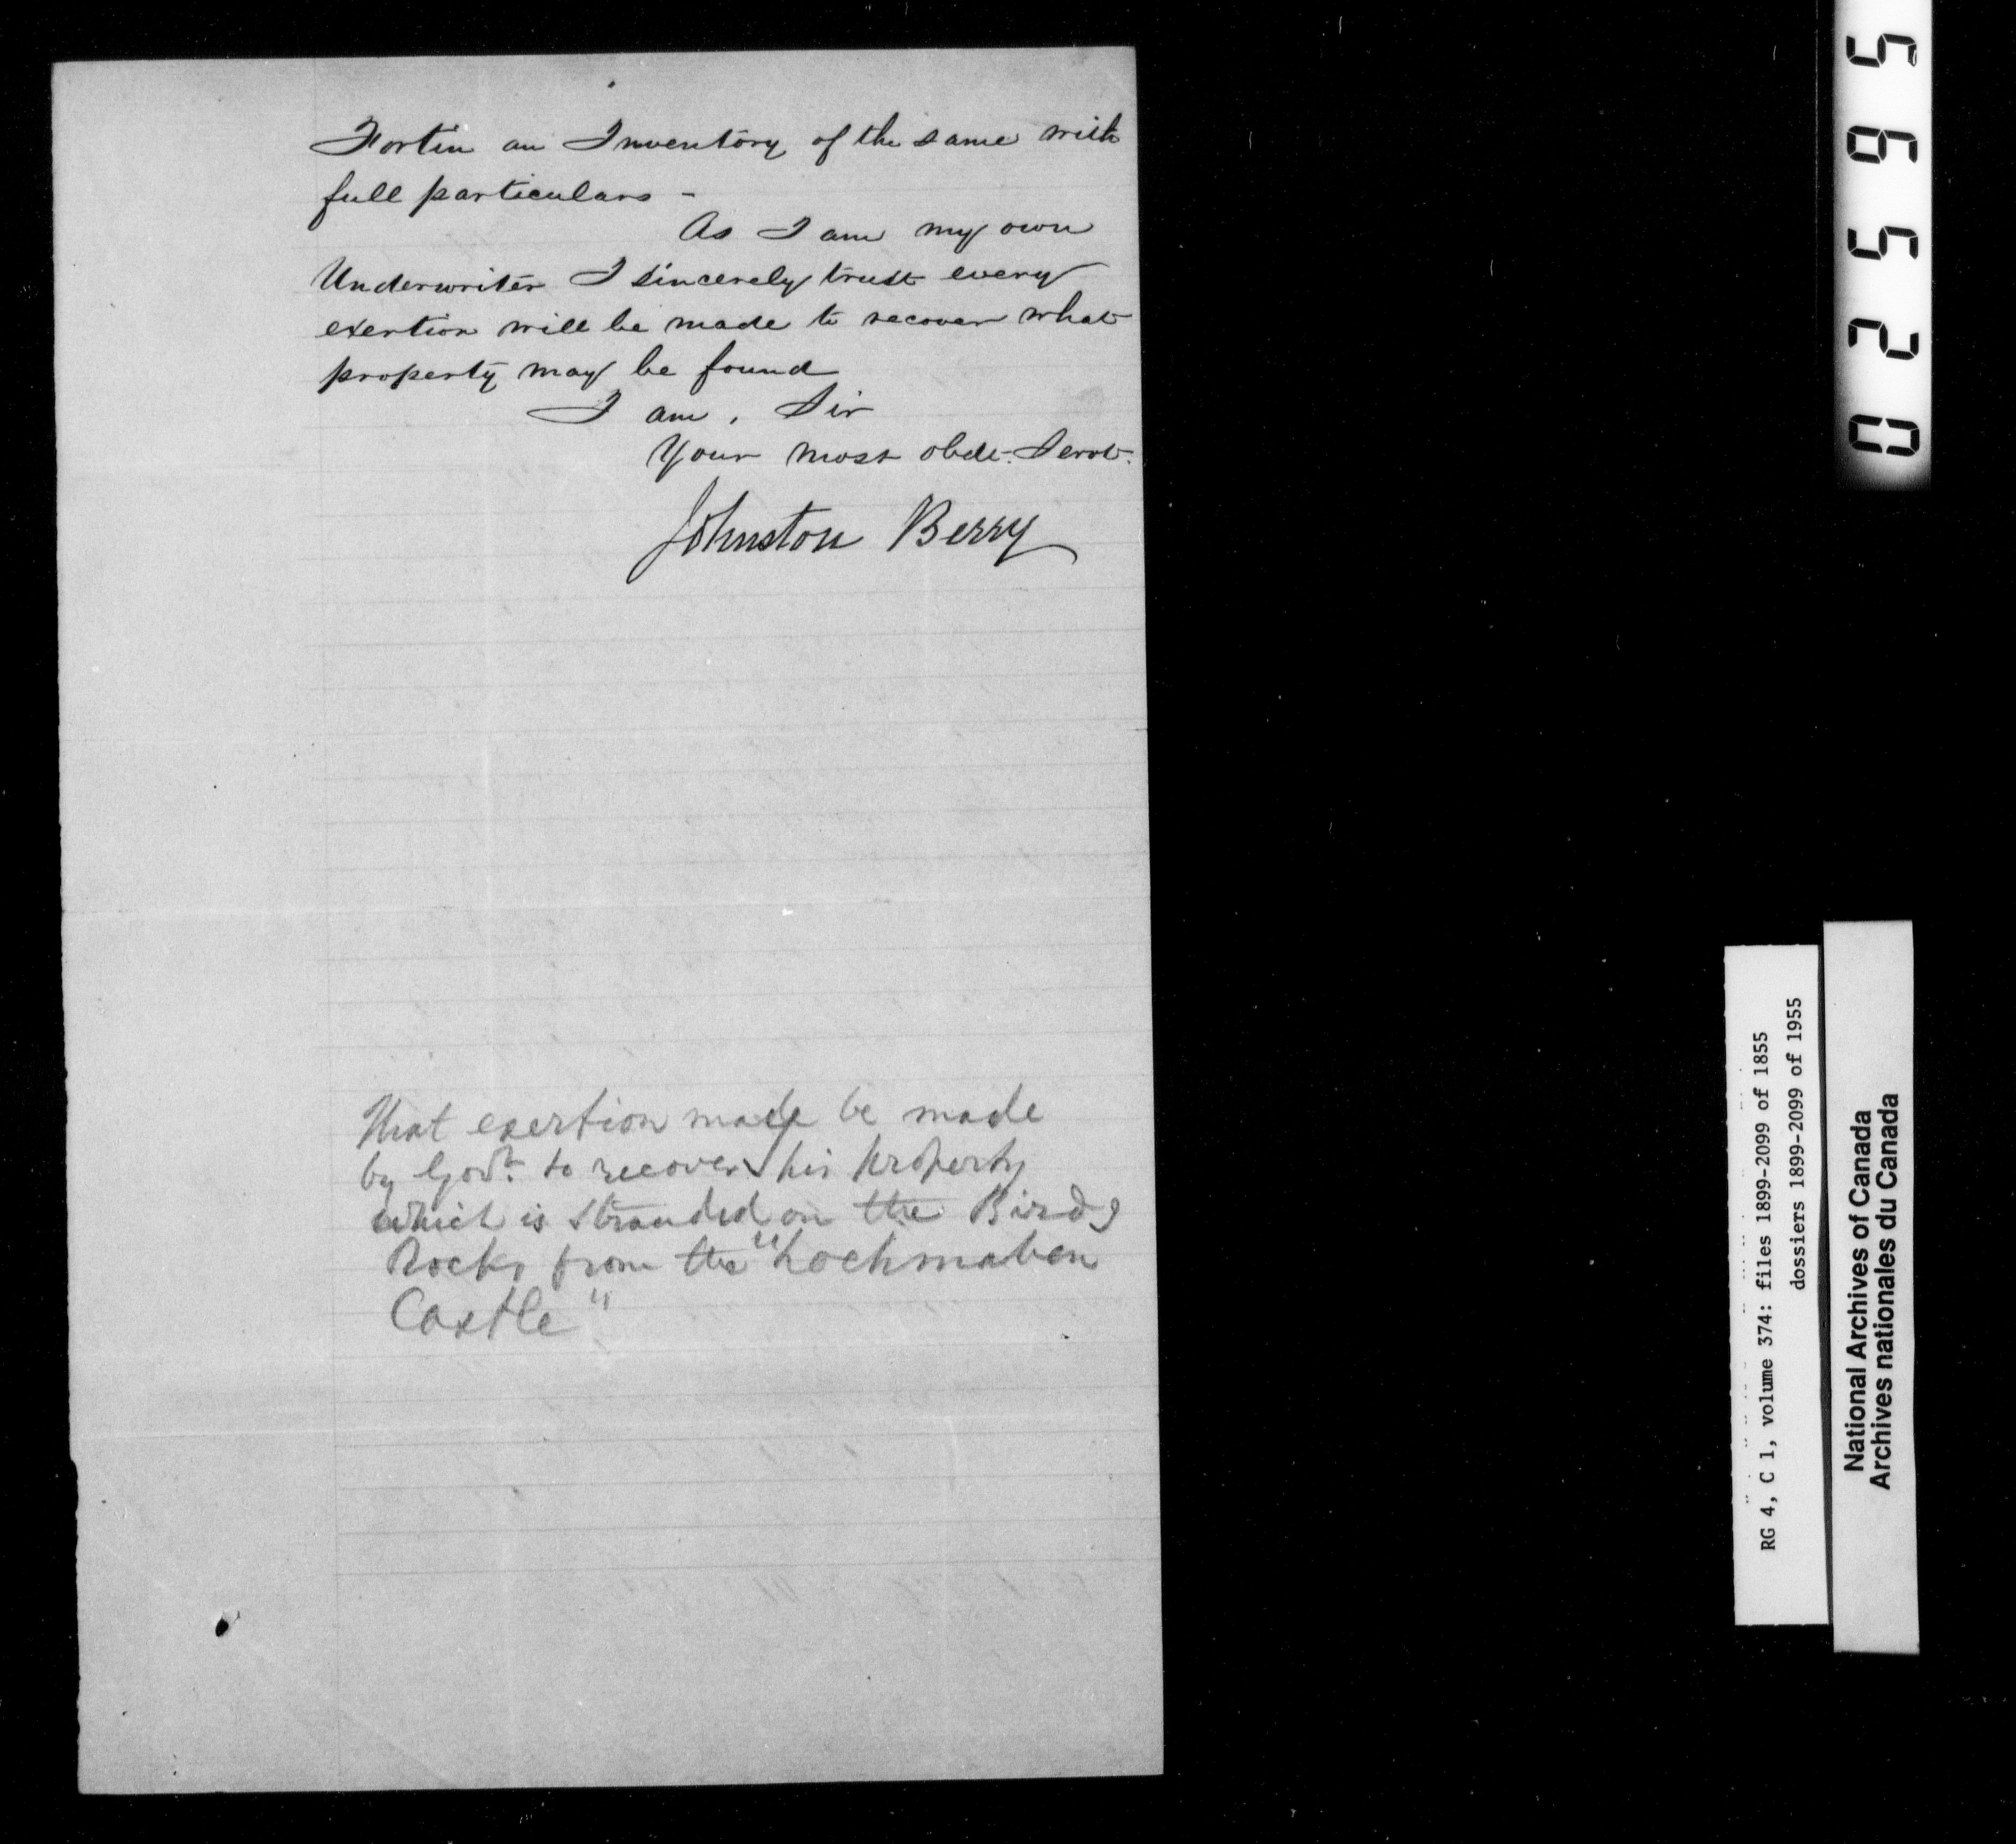 Fortin an Inventory of the same with
full particulars -
As I am my own
Underwriter I sincerely trust every
exertion will be made to recover what
property may be found
I am, Sir
Your most obdt. Servt.
Johnston Berry
That exertion may be made
by Govt. to recover his property
which is stranded on the Birds
Rocks from the "Lochmaben
Castle"
025695
RG 4, C 1, volume 374: files 1899-2099 of 1855
dossiers 1899-2099 of 1955
National Archives of Canada
Archives nationales du Canada